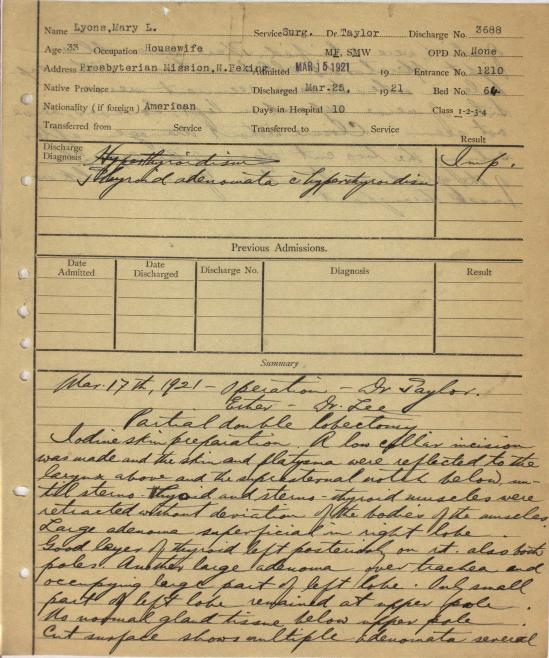 Name Lyons, Mary L. Service Surg. Dr. Taylor Discharge No. 3688
Age 33 Occupation Housewife MF, SMW OPD No. None
Address Presbyterian Mission, N. Peking Admitted MAR 15 1921 19 Entrance No. 1210
Native Province Discharged Mar. 25, 1921 Bed No. 64
Nationality (if foreign) American Days in Hospital 10 Class 1-2-3-4
Transferred from Service Transferred to Service
Result
Discharge Diagnosis Hyperthyroidism Imp.
Thyroid adenomata c hyperthyroidism
Previous Admissions.
Date Admitted Date Discharged Discharge No. Diagnosis Result
Summary
Mar. 17th, 1921 - Operation - Dr Taylor.
Ether - Dr. Lee
Partial double lobectomy
Iodine skin preparation. A low collar incision
was made and the skin and platysma were reflected to the
larynx above and the suprasternal notch below, un-
till sterno-thyroid and sterno-thyroid muscles were
retracted without deviation of the bodies of the muscles
Large adenoma superficial in right lobe.
Good layer of thyroid left posteriorly on it. also both
poles. Another large adenoma over trachea and
occupying large part of left lobe. Only small
part of left lobe remained at upper pole.
No normal gland tissue below upper pole.
Cut surface shows multiple adenomata several